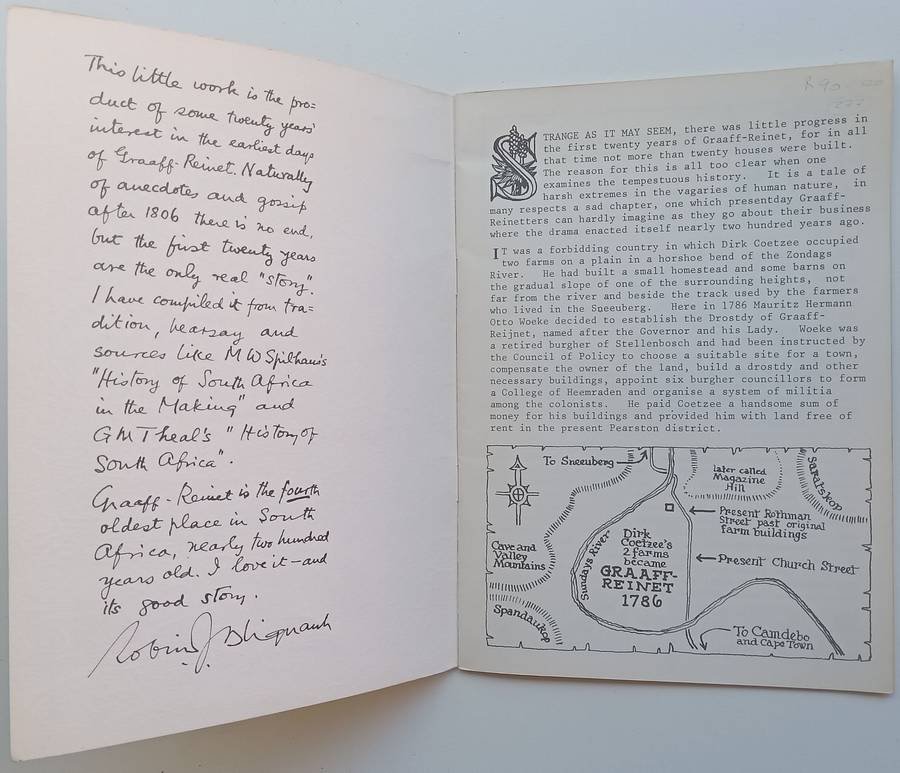 This little work is the pro=
duct of some twenty years'
interest in the earliest days
of Graaff-Reinet. Naturally
of anecdotes and gossip
after 1806 there is no end,
but the first twenty years
are the only real "story".
I have compiled it from tra=
dition, hearsay and
sources like M W Spilhaus's
"History of South Africa
in the Making" and
G M Theal's "History of
South Africa".
Graaff-Reinet is the fourth
oldest place in South
Africa, nearly two hundred
years old. I love it - and
its good story.
Robin J Blignault
R90
STRANGE AS IT MAY SEEM, there was little progress in
the first twenty years of Graaff-Reinet, for in all
that time not more than twenty houses were built.
The reason for this is all too clear when one
examines the tempestuous history. It is a tale of
harsh extremes in the vagaries of human nature, in
many respects a sad chapter, one which presentday Graaff-
Reinetters can hardly imagine as they go about their business
where the drama enacted itself nearly two hundred years ago.
IT was a forbidding country in which Dirk Coetzee occupied
two farms on a plain in a horshoe bend of the Zondags
River. He had built a small homestead and some barns on
the gradual slope of one of the surrounding heights, not
far from the river and beside the track used by the farmers
who lived in the Sneeuberg. Here in 1786 Mauritz Hermann
Otto Woeke decided to establish the Drostdy of Graaff-
Reijnet, named after the Governor and his Lady. Woeke was
a retired burgher of Stellenbosch and had been instructed by
the Council of Policy to choose a suitable site for a town,
compensate the owner of the land, build a drostdy and other
necessary buildings, appoint six burgher councillors to form
a College of Heemraden and organise a system of militia
among the colonists. He paid Coetzee a handsome sum of
money for his buildings and provided him with land free of
rent in the present Pearston district.
To Sneeuberg
later called
Magazine
Hill
Saratskop
Present Rothman
Street past original
farm buildings
Dirk
Coetzee's
2 farms
became
GRAAFF-
REINET
1786
Sundays River
Cave and
Valley
Mountains
Present Church Street
Spandaukop
To Camdebo
and Cape Town